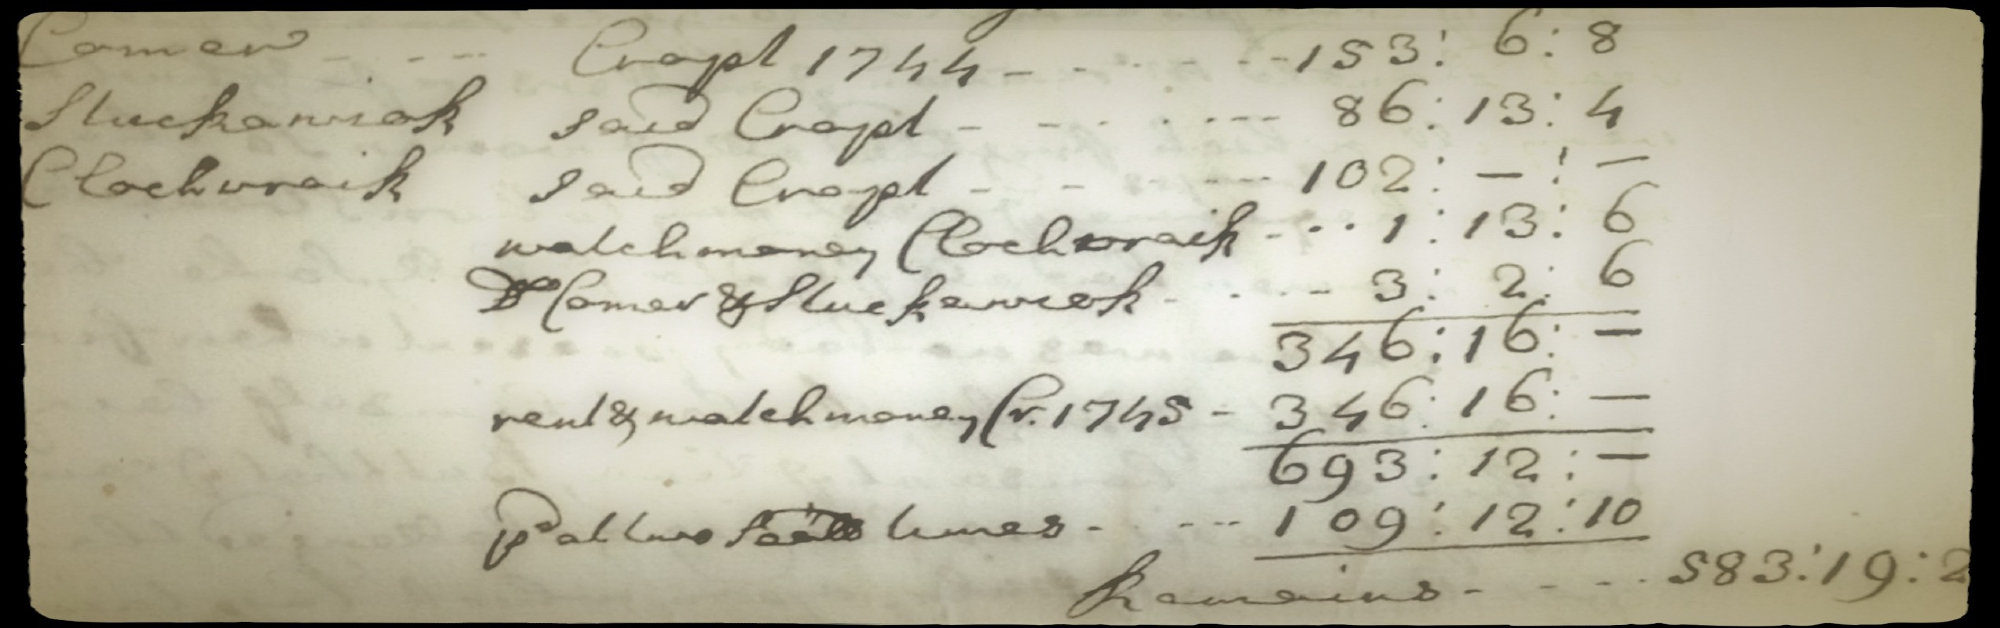 Comer - - - - Cropt 1744 - - - - - 153: 6: 8
Stuckanriok said Cropt - - - - - - - 86: 13: 4
Clochuraik said Cropt - - - - - - 102: — : —
watchmoney Clochuraik - - - 1: 13: 6
Do Comer & Stuckanriok - - - - 3: 2: 6
346: 16: —
rent & watchmoney Cr. 1745 - 346: 16: —
693: 12: —
pd at two times - - - - 109: 12: 10
Remains - - - - - 583: 19: 2